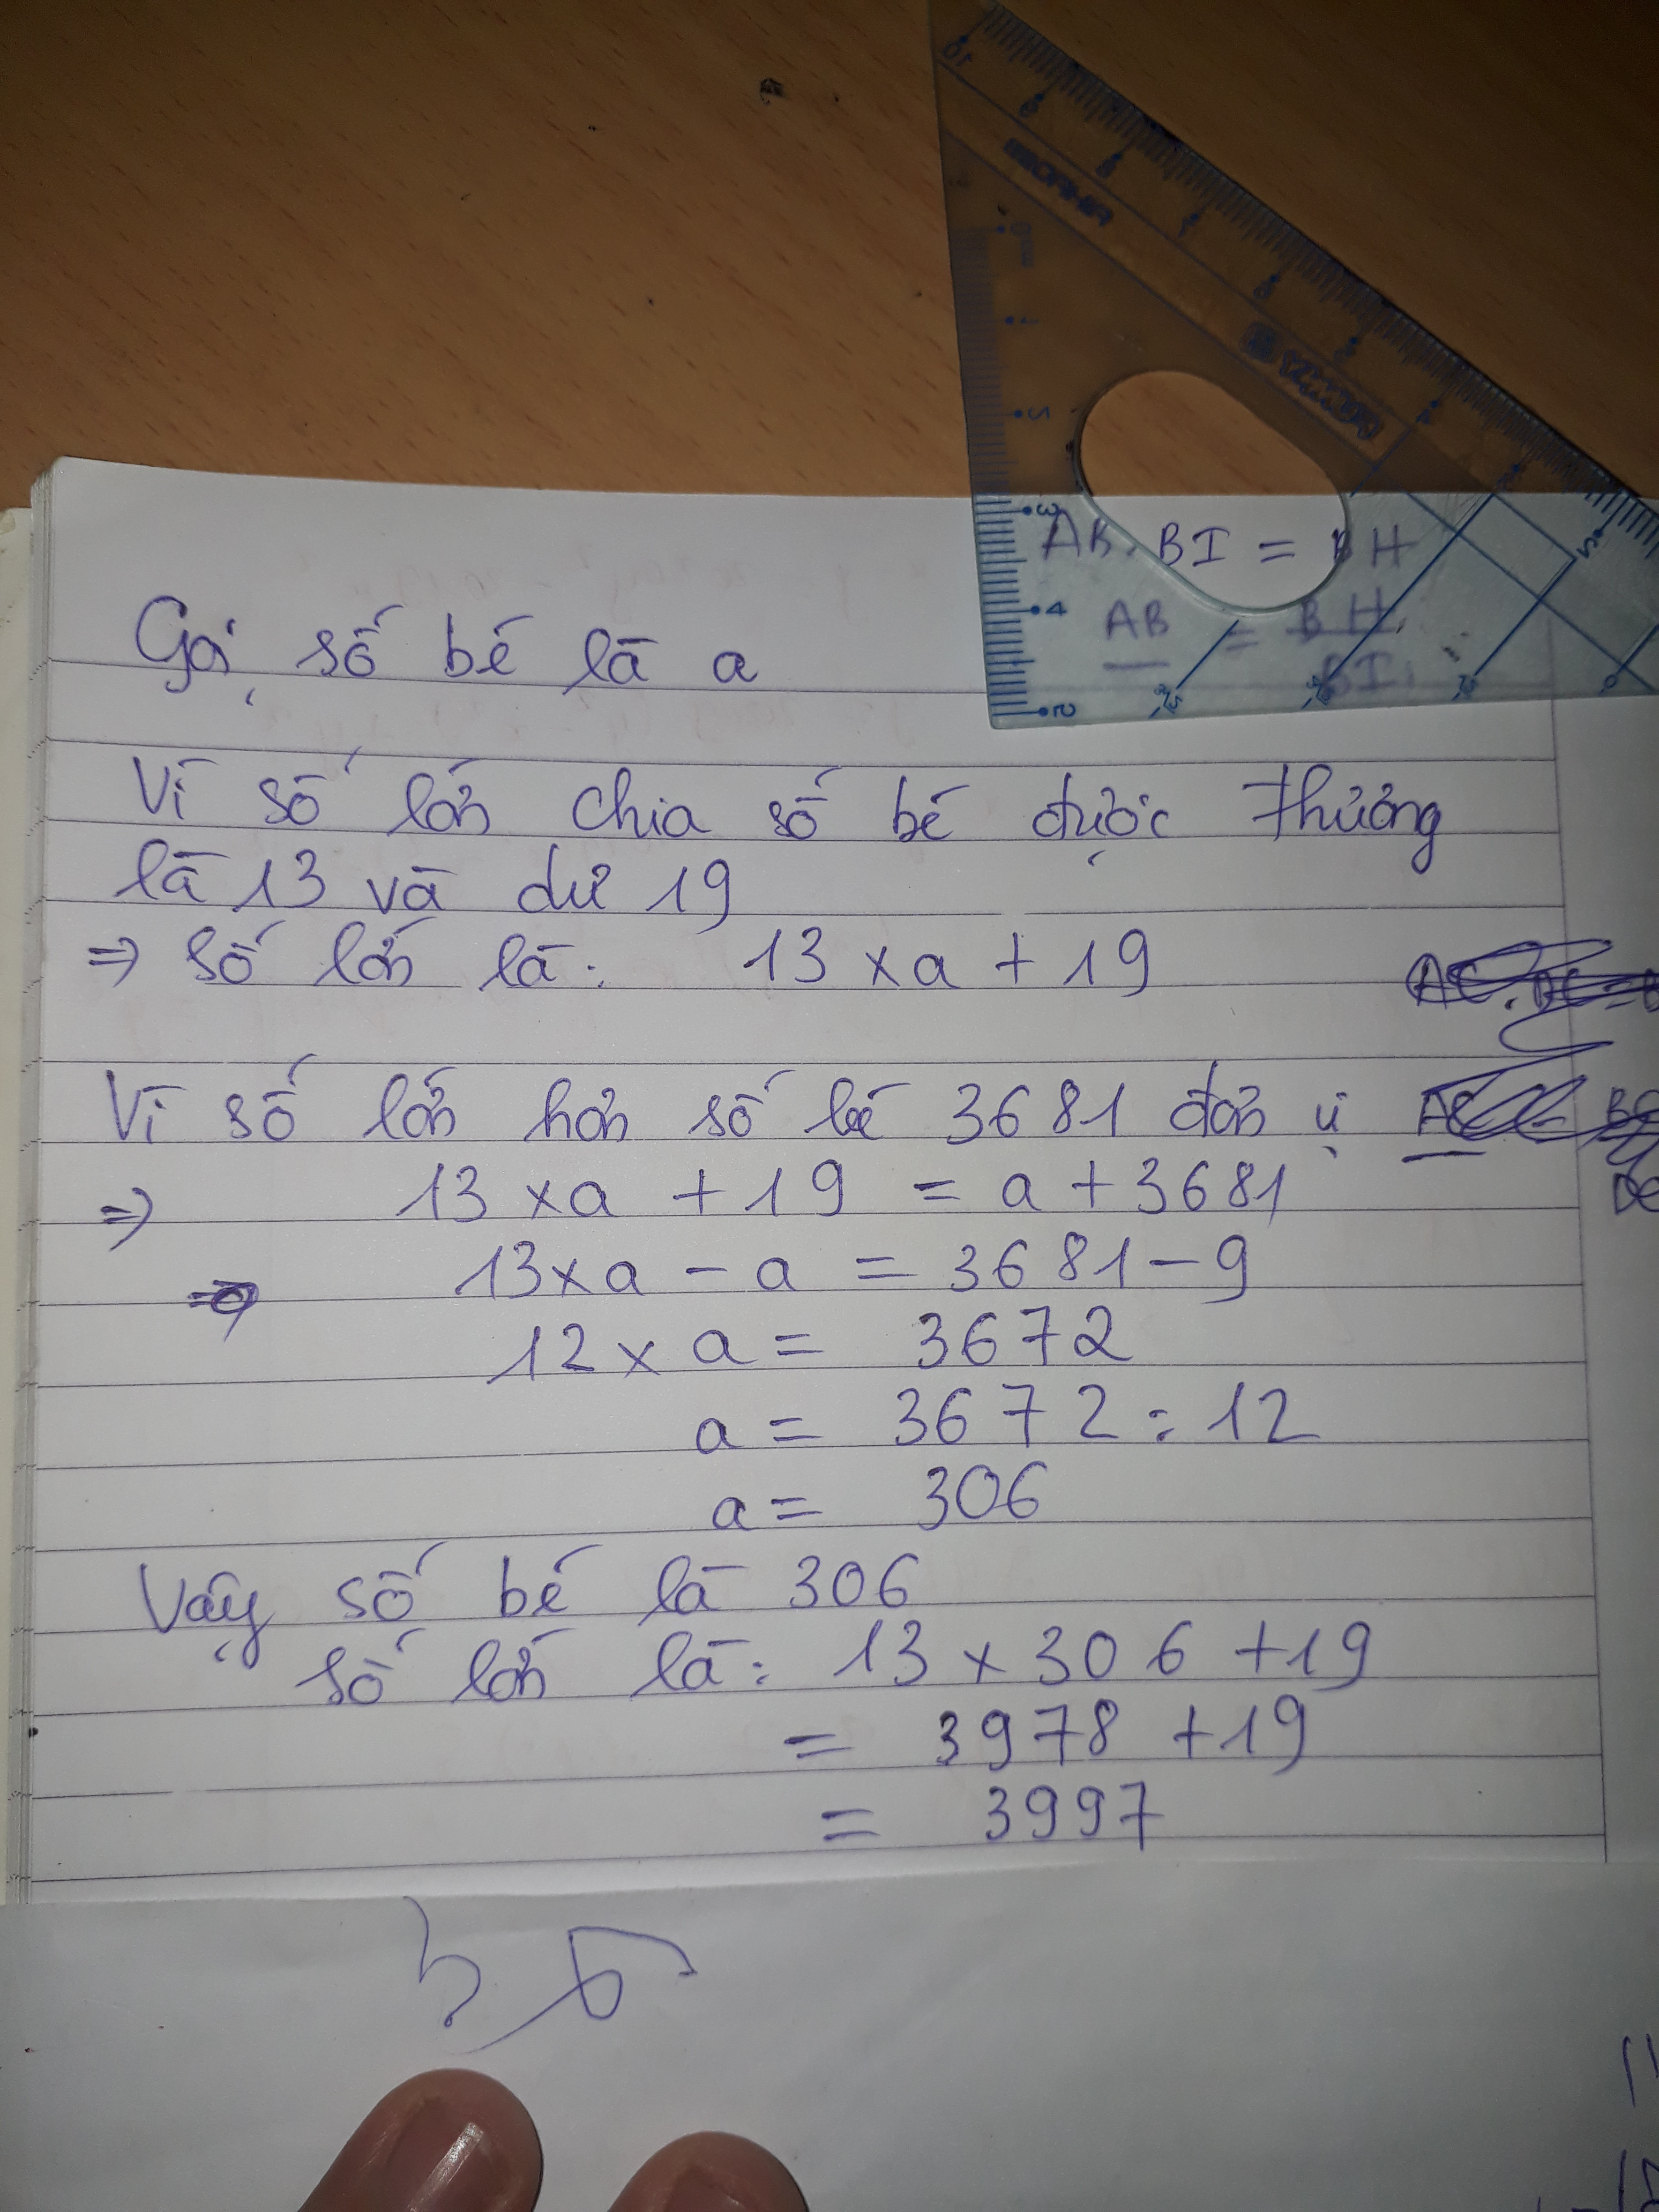 AB. BI = BH
AB = BH
BI
Gọi số bé là a
Vì số lớn chia số bé được thương
là 13 và dư 19
=> số lớn là: 13 x a + 19
Vì số lớn hơn số bé 3681 đơn vị
=> 13 x a + 19 = a + 3681
13 x a - a = 3681 - 9
12 x a = 3672
a = 3672 : 12
a = 306
Vậy số bé là 306
số lớn là: 13 x 306 + 19
= 3978 + 19
= 3997